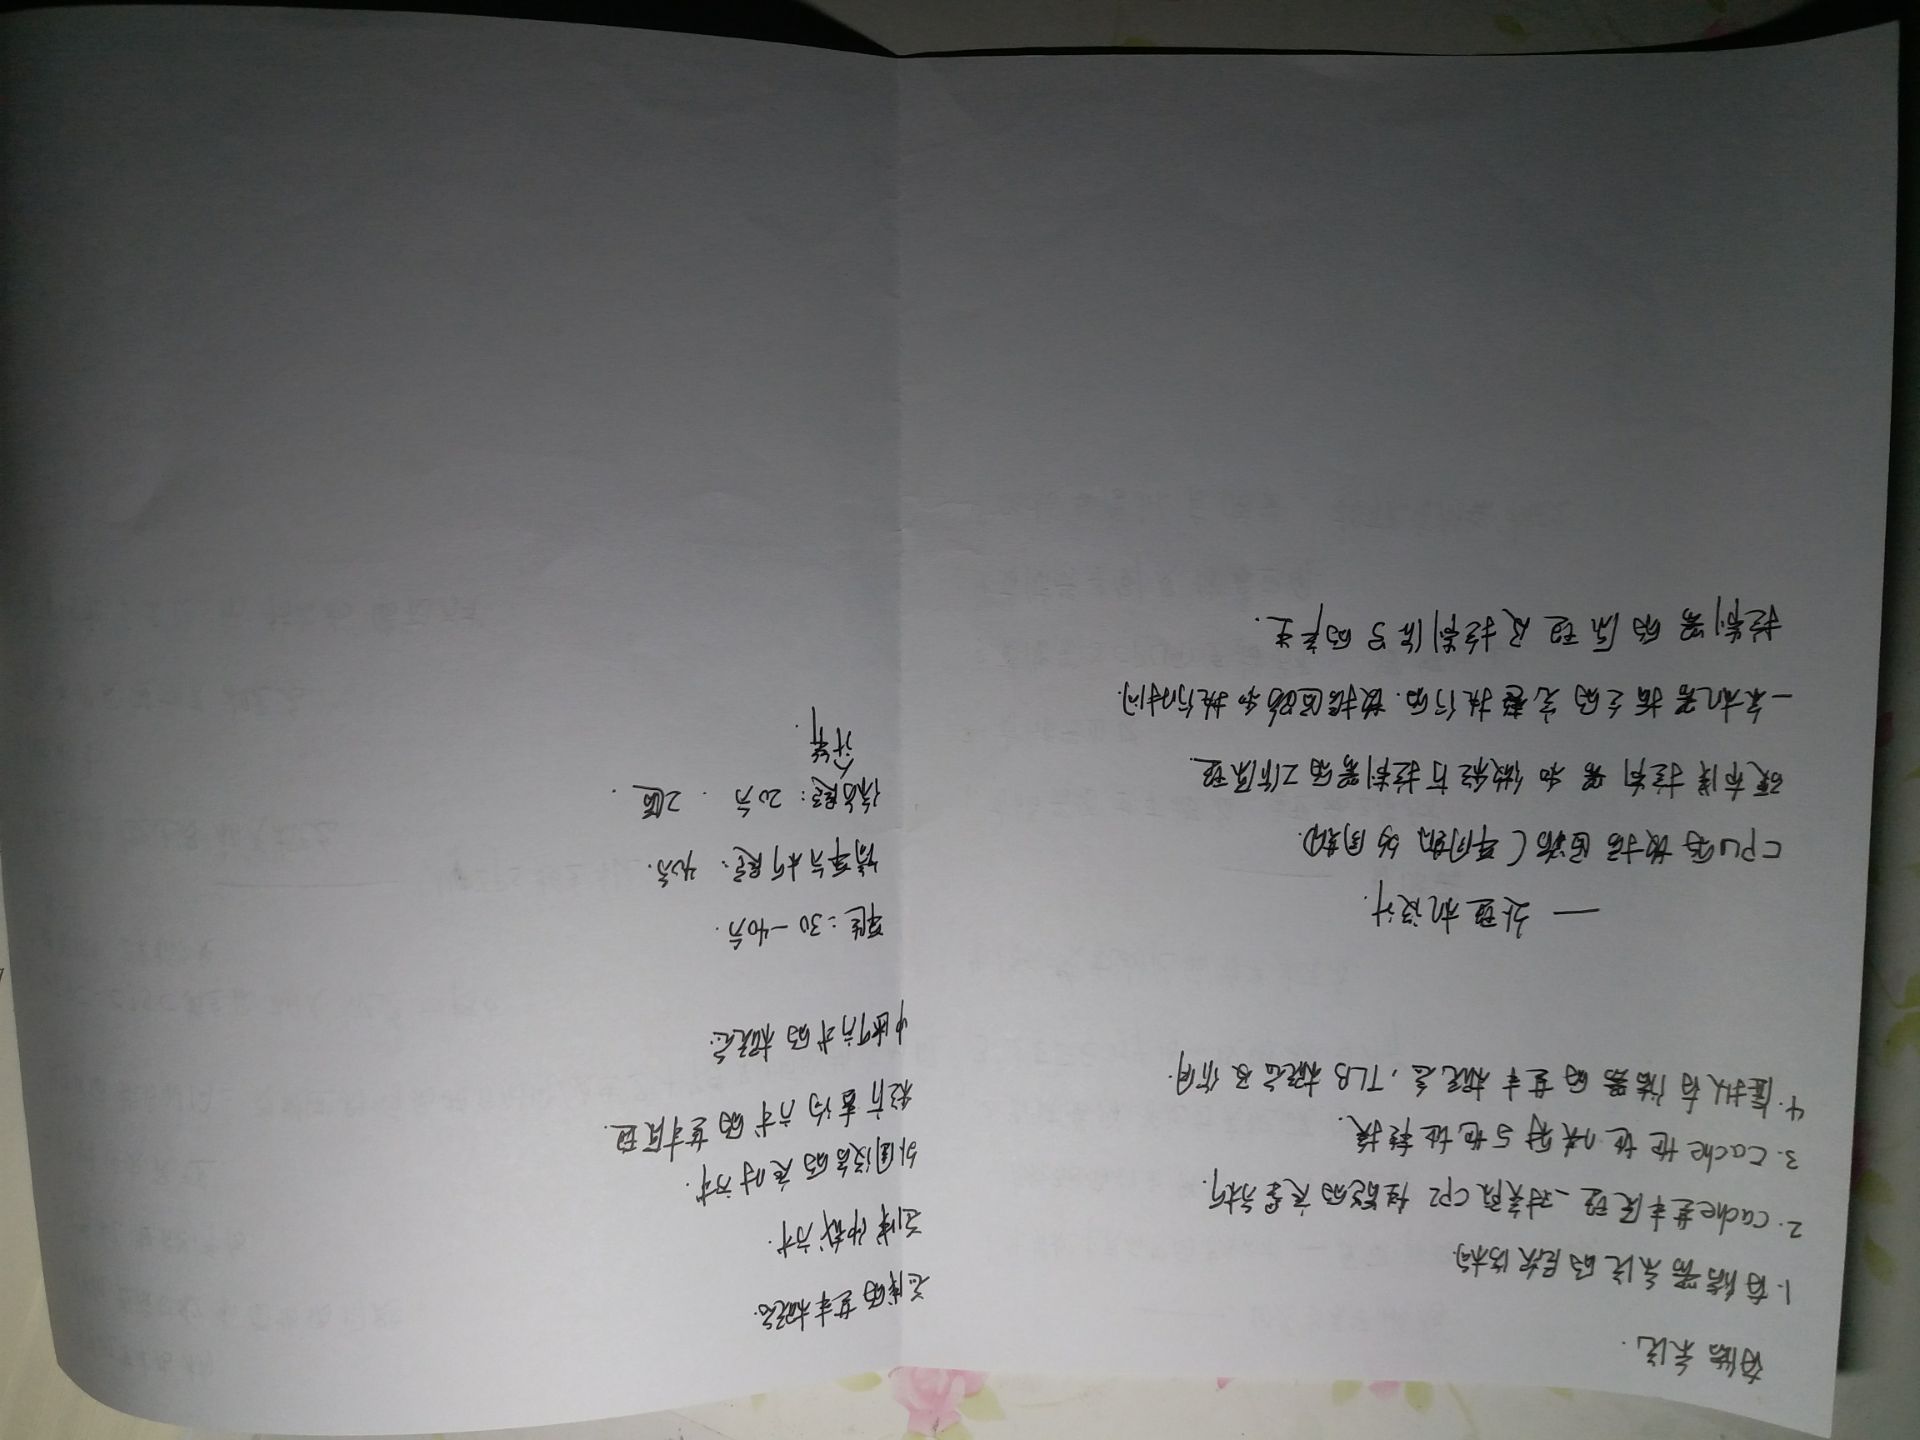 存储系统.
1. 存储器系统的层次结构.
2. cache基本原理、对实际CPI 性能的定量分析.
3. cache 地址映射与地址转换.
4. 虚拟存储器的基本概念,TLB概念及作用.
— 处理机设计.
CPU的数据通路(单周期 多周期).
硬布线控制器和微程序控制器的工作原理.
一条机器指令的完整执行的.数据通路和执行时间.
控制器的原理及控制信号的产生.
总线的基本概念.
总线仲裁方式.
外围设备的定时方式.
程序查询方式的基本原理.
中断方式的概念.
单选:30—40分.
简单分析题:40分.
综合题:20分.2道.
计算.